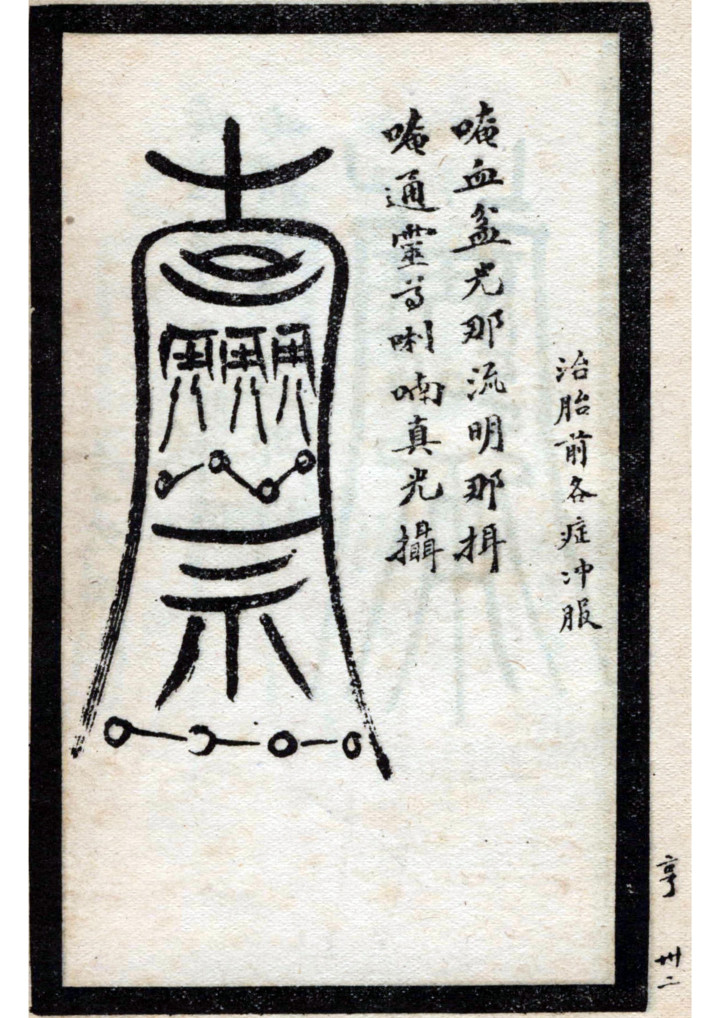 治胎前各症冲服
唵血盆光那流明那揖
唵通靈芎唎喃真光攝
亨 卅二